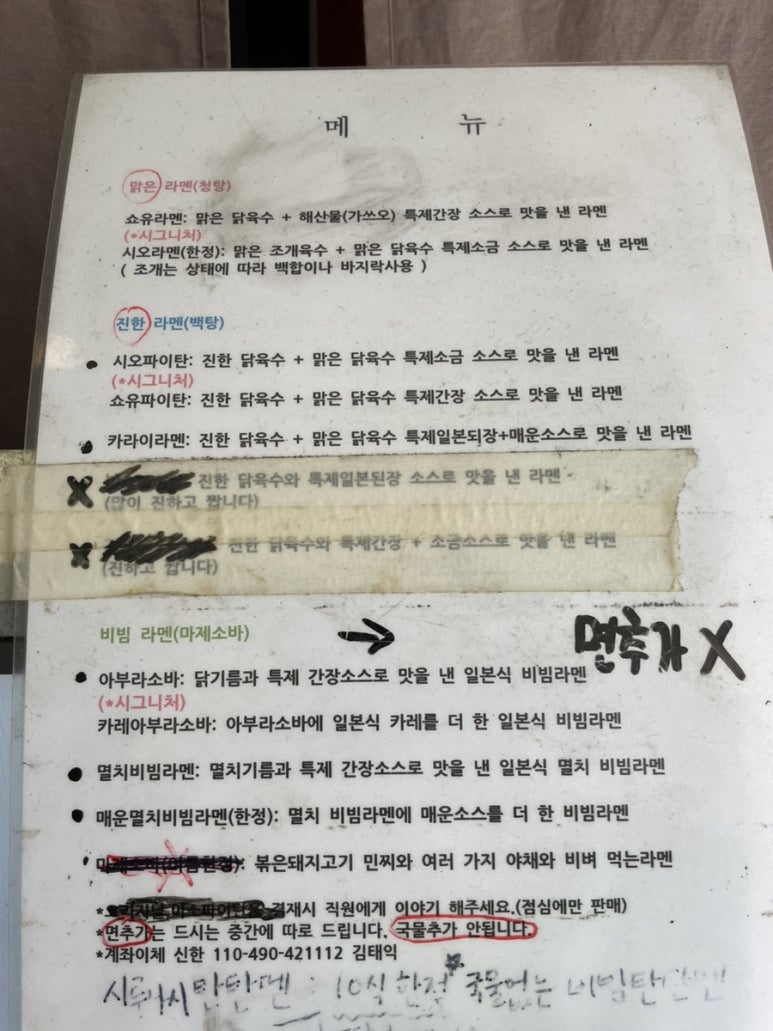 메 뉴
맑은 라멘(청탕)
쇼유라멘: 맑은 닭육수 + 해산물(가쓰오) 특제간장 소스로 맛을 낸 라멘
(*시그니처)
시오라멘(한정): 맑은 조개육수 + 맑은 닭육수 특제소금 소스로 맛을 낸 라멘
( 조개는 상태에 따라 백합이나 바지락사용 )
진한 라멘(백탕)
시오파이탄: 진한 닭육수 + 맑은 닭육수 특제소금 소스로 맛을 낸 라멘
(*시그니처)
쇼유파이탄: 진한 닭육수 + 맑은 닭육수 특제간장 소스로 맛을 낸 라멘
카라이라멘: 진한 닭육수 + 맑은 닭육수 특제일본되장+매운소스로 맛을 낸 라멘
X 진한 닭육수와 특제일본된장 소스로 맛을 낸 라멘
(많이 진하고 짭니다)
X 진한 닭육수와 특제간장 + 소금소스로 맛을 낸 라멘
(진하고 짭니다)
비빔 라멘(마제소바) → 면추가 X
아부라소바: 닭기름과 특제 간장소스로 맛을 낸 일본식 비빔라멘
(*시그니처)
카레아부라소바: 아부라소바에 일본식 카레를 더 한 일본식 비빔라멘
멸치비빔라멘: 멸치기름과 특제 간장소스로 맛을 낸 일본식 멸치 비빔라멘
매운멸치비빔라멘(한정): 멸치 비빔라멘에 매운소스를 더 한 비빔라멘
마제소바(여름한정): 볶은돼지고기 민찌와 여러 가지 야채와 비벼 먹는라멘
결재시 직원에게 이야기 해주세요.(점심에만 판매)
*면추가는 드시는 중간에 따로 드립니다. 국물추가 안됩니다.
*계좌이체 신한 110-490-421112 김태익
탄탄멘 : 10식 한정 국물없는 비빔탄탄멘